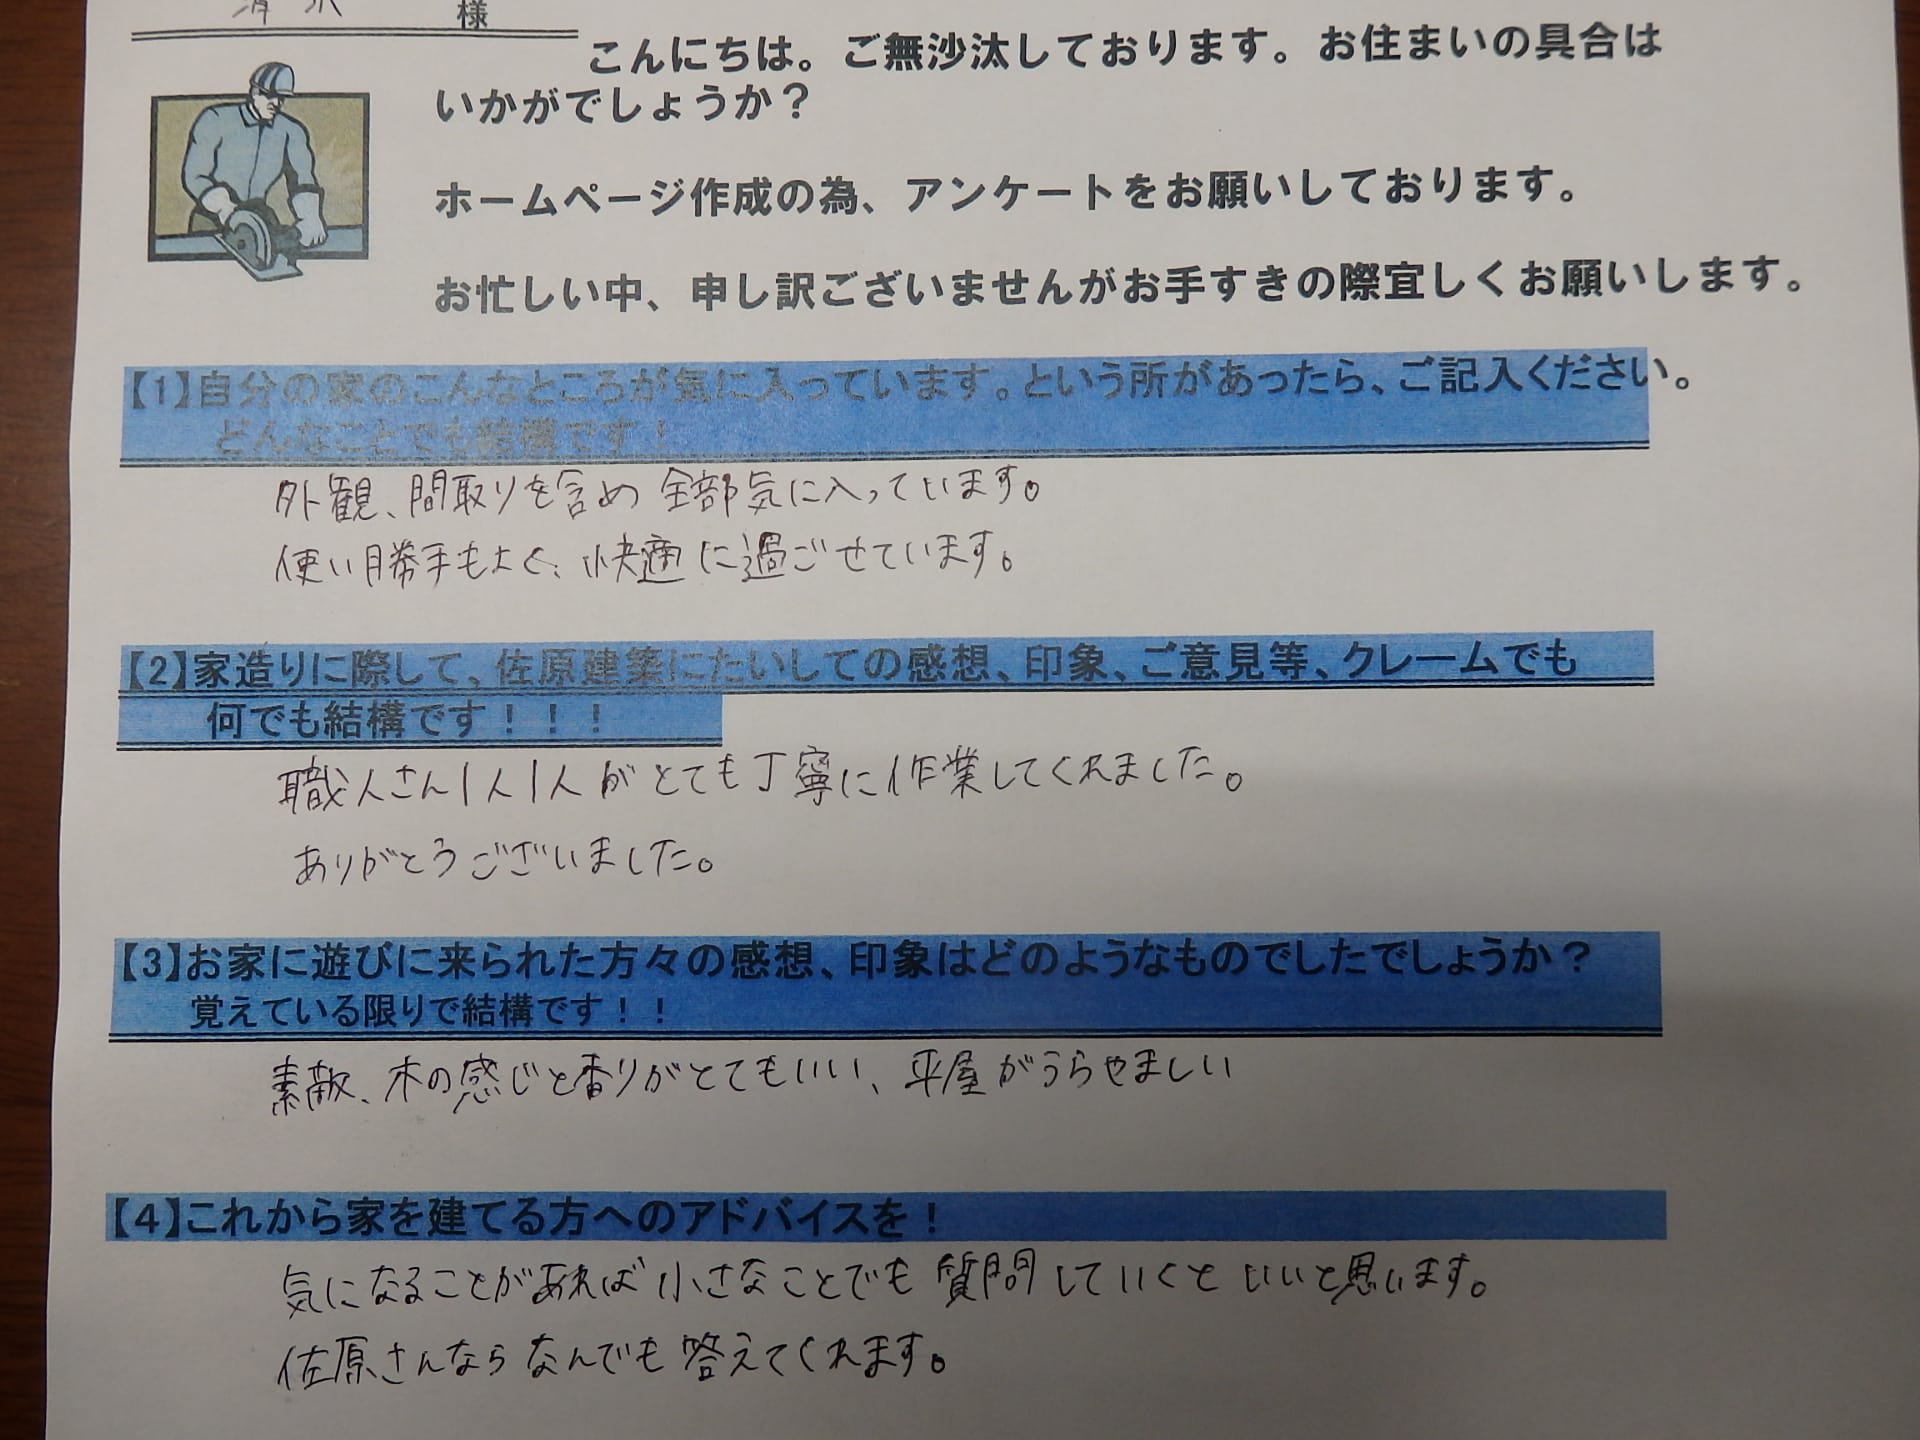 様
こんにちは。ご無沙汰しております。お住まいの具合は
いかがでしょうか？
ホームページ作成の為、アンケートをお願いしております。
お忙しい中、申し訳ございませんがお手すきの際宜しくお願いします。
【1】自分の家のこんなところが気に入っています。という所があったら、ご記入ください。
どんなことでも結構です！
外観、間取りを含め 全部気に入っています。
使い勝手もよく、快適に過ごせています。
【2】家造りに際して、佐原建築にたいしての感想、印象、ご意見等、クレームでも
何でも結構です！！！
職人さん1人1人がとても丁寧に作業してくれました。
ありがとうございました。
【3】お家に遊びに来られた方々の感想、印象はどのようなものでしたでしょうか？
覚えている限りで結構です！！
素敵、木の感じと香りがとてもいい、平屋がうらやましい
【4】これから家を建てる方へのアドバイスを！
気になることがあれば小さなことでも質問していくといいと思います。
佐原さんならなんでも答えてくれます。